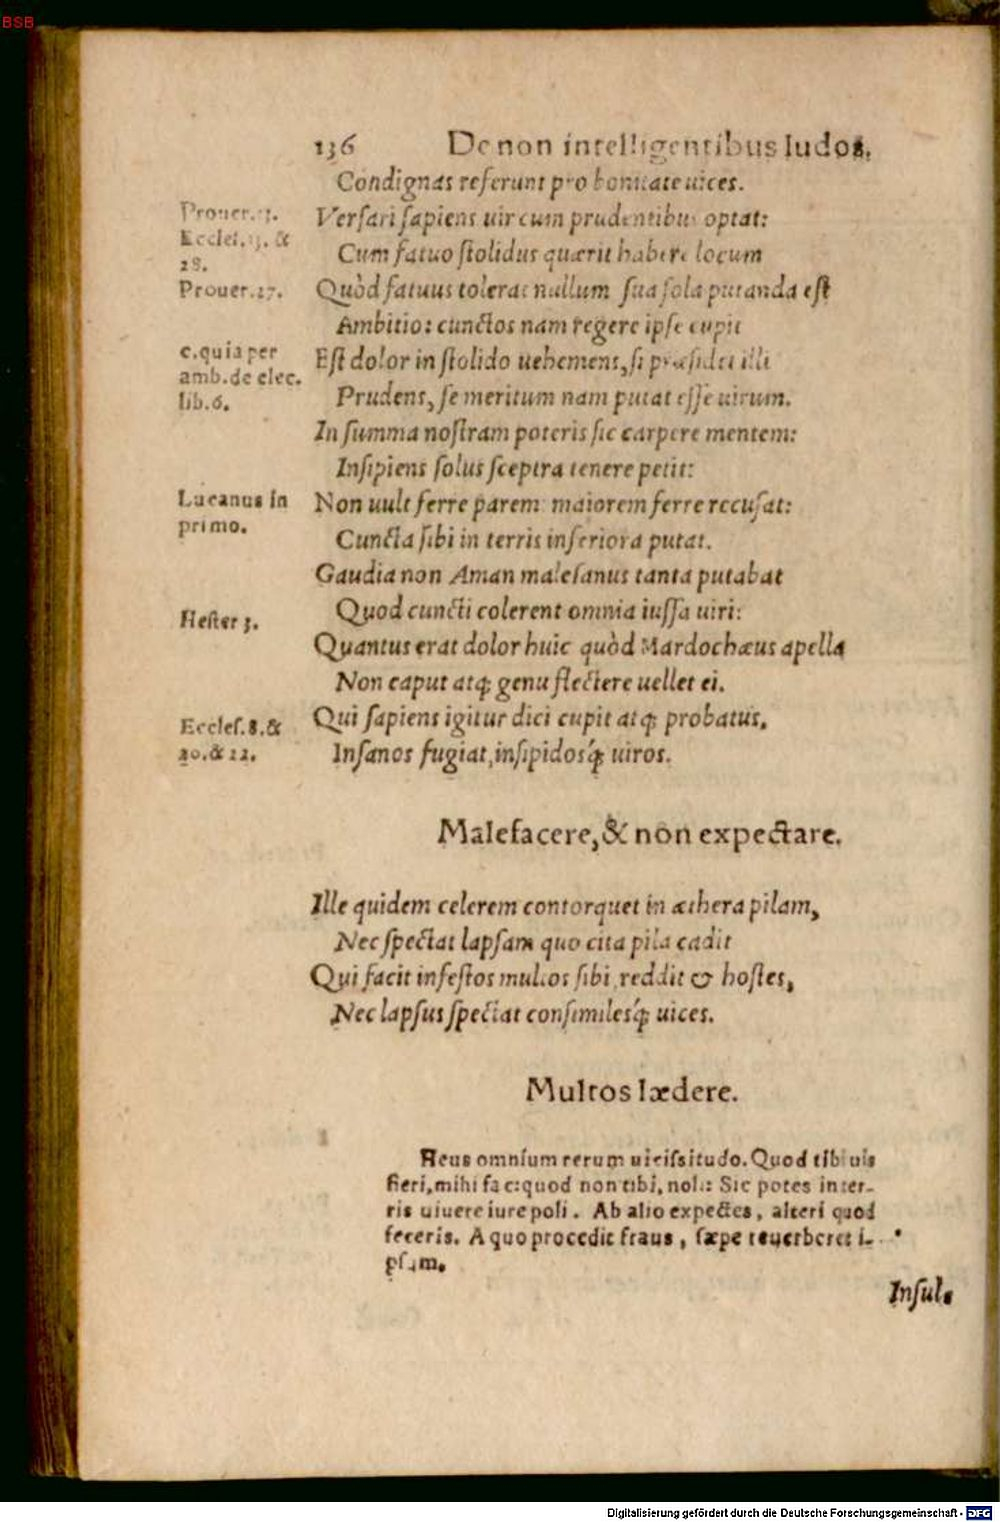 BSB
136 De non intelligentibus ludos.
Condignas referunt pro bonitate uices.
Prouer. 13.
Versari sapiens uir cum prudentibus optat:
Eccles. 13. &
28.
Cum fatuo stolidus quærit habere locum
Prouer. 27.
Quòd fatuus tolerat nullum sua sola putanda est
Ambitio: cunctos nam regere ipse cupit
c. quia per
amb. de elec.
lib. 6.
Est dolor in stolido uehemens, si præsidet illi
Prudens, se meritum nam putat esse uirum.
In summa nostram poteris sic carpere mentem:
Insipiens solus sceptra tenere petit:
Lucanus in
primo.
Non uult ferre parem: maiorem ferre recusat:
Cuncta sibi in terris inferiora putat.
Gaudia non Aman malesanus tanta putabat
Hester 3.
Quod cuncti colerent omnia iussa uiri:
Quantus erat dolor huic quòd Mardochæus apella
Non caput atq; genu flectere uellet ei.
Eccles. 8. &
20. & 22.
Qui sapiens igitur dici cupit atq; probatus,
Insanos fugiat, insipidosq́; uiros.
Malefacere, & non expectare.
Ille quidem celerem contorquet in æthera pilam,
Nec spectat lapsam quo cita pila cadit
Qui facit infestos multos sibi, reddit & hostes,
Nec lapsus spectat consimilesq́; uices.
Multos lædere.
Heus omnium rerum uicissitudo. Quod tibi uis
fieri, mihi fac: quod non tibi, noli: Sic potes in ter-
ris uiuere iure poli. Ab alio expectes, alteri quod
feceris. A quo procedit fraus, sæpe reuerberet i-
psam.
Insul.
Digitalisierung gefördert durch die Deutsche Forschungsgemeinschaft - DFG